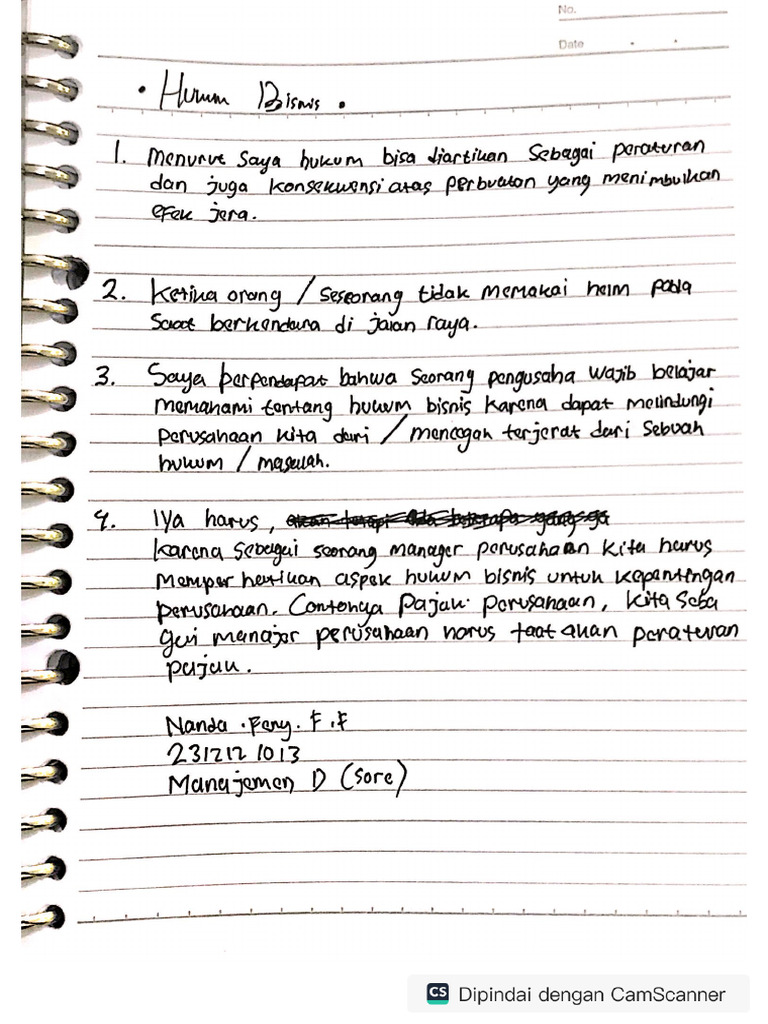 No.
Date
• Hukum Bisnis •
1. Menurut saya hukum bisa diartikan sebagai peraturan
dan juga konsekuensi atas perbuatan yang menimbulkan
efek jera.
2. Ketika orang / seseorang tidak memakai helm pada
saat berkendara di jalan raya.
3. Saya berpendapat bahwa seorang pengusaha wajib belajar
memahami tentang hukum bisnis karena dapat melindungi
perusahaan kita dari / mencegah terjerat dari sebuah
hukum / masalah.
4. Iya harus,
karena sebagai seorang manager perusahaan kita harus
memperhatikan aspek hukum bisnis untuk kepentingan
perusahaan. Contonya pajak perusahaan, kita seba
gai manajer perusahaan harus taat akan peraturan
pajak.
Nanda . Feny . F . F
231212 1013
Manajemen D (sore)
CS Dipindai dengan CamScanner